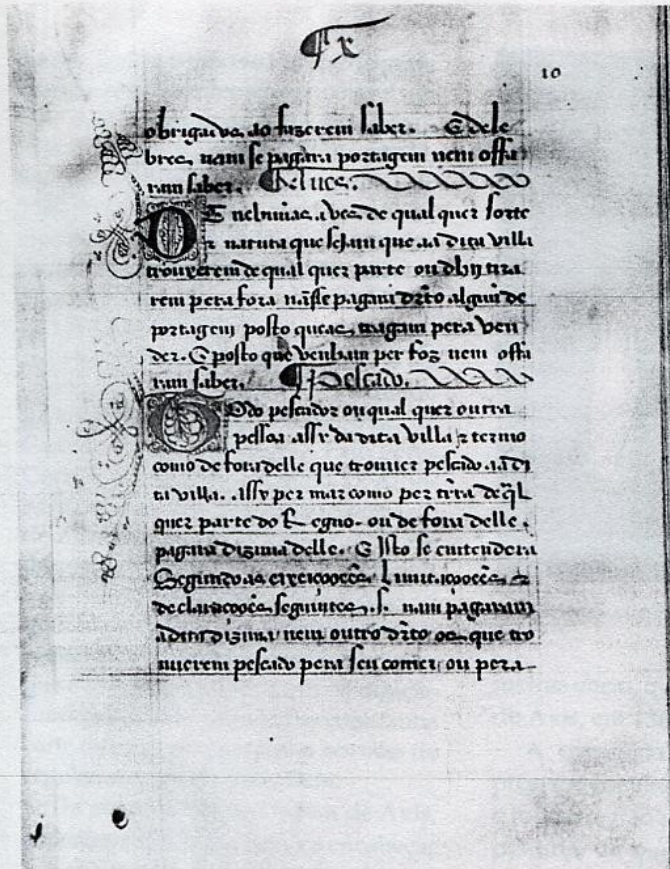 ¶ x
10
obrigados ao fazerem saber. E de le
bres nam se pagara portagem nem offa
ram saber. ¶ De aves.
DE nehuũas aves de qual quer sorte
z natura que sejam que aa dita villa
trouxerem de qual quer parte ou dhy tira
rem pera fora nã se pagara dr̃to alguũ de
portagem posto que as tragam pera ven
der. E posto que venham per foz nem offa
ram saber. ¶ Pescado.
TOdo pescador ou qual quer outra
pessoa assy da dita villa z termo
como de fora delle que trouuer pescado aa di
ta villa. Assy per mar como per trr̃a de q̃l
quer parte do Regno. ou de fora delle.
pagara dizima delle. E Isto se entendera
Segundo as eixeicooẽs Limitacooẽs z
declaracooẽs seguintes .s. nam pagaram
a dita dizima nem outro dr̃to os que tro
uuerem pescado pera seu comer ou pera